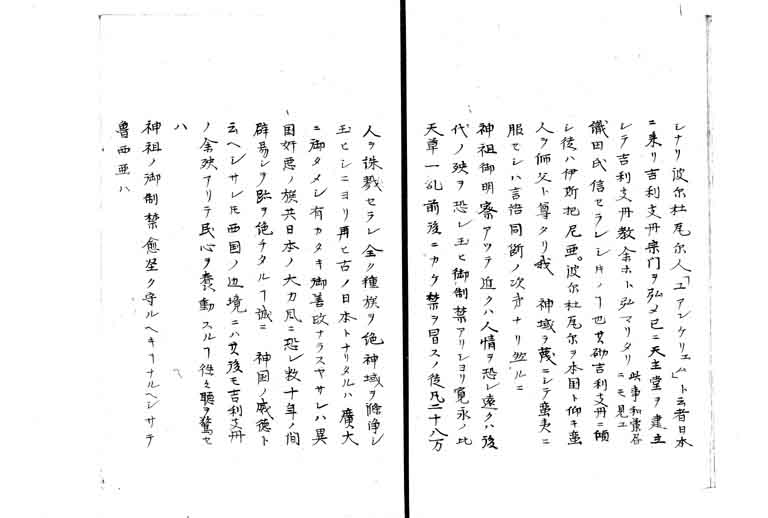 シナリ波尔杜瓦尔人「ユアンケリエム」ト云者日本
ニ来リ吉利支丹宗门ヲ弘メ已ニ天主堂ヲ建立
シテ吉利支丹教余ホト弘マリタリ此事和蘭 ニモ見エ
織田氏信セラレシ片ノヿ也其砌吉利支丹ニ傾
シ徒ハ伊斯把尼亜。波尔杜瓦尔ヲ本国ト仰キ蛮
人ヲ师父ト尊タリ我 神域ヲ蔑ニシテ蛮夷ニ
服セシハ言語同断ノ次第ナリ然ルニ
神祖御明察アツテ近クハ人情ヲ恐レ遠クハ後
代ノ殃ヲ恐レ玉ヒ御制禁アリシヨリ寛永ノ比
天草一乱前後ニカケ禁ヲ冒スノ徒凡二十八万
人ヲ誅戮セラレ全ク種族ヲ绝神域ヲ除浄シ
玉ヒシニヨリ再ヒ古ノ日本トナリタルハ廣大
ニ御タメシ有カタキ御善政ナラスヤサレハ異
国奸悪ノ族共日本ノ大カ風ニ恐レ数十年ノ间
辟易シヲ跡ヲ绝チタルヿ誠ニ 神国ノ威徳ト
云ヘシサレ𪜈西国ノ辺境ニハ其後モ吉利支丹
ノ余殃アリテ民心ヲ蠢動スルヿ徃々聴ヲ驚セ
ハ
神祖ノ御制禁愈坚ク守ルヘキヿナルヘシサテ
魯西亜ハ